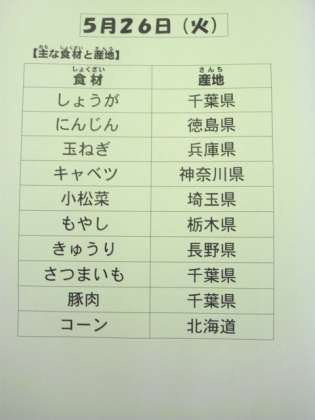 5月26日（火）
【主な食材と産地】
食材 産地
しょうが 千葉県
にんじん 徳島県
玉ねぎ 兵庫県
キャベツ 神奈川県
小松菜 埼玉県
もやし 栃木県
きゅうり 長野県
さつまいも 千葉県
豚肉 千葉県
コーン 北海道